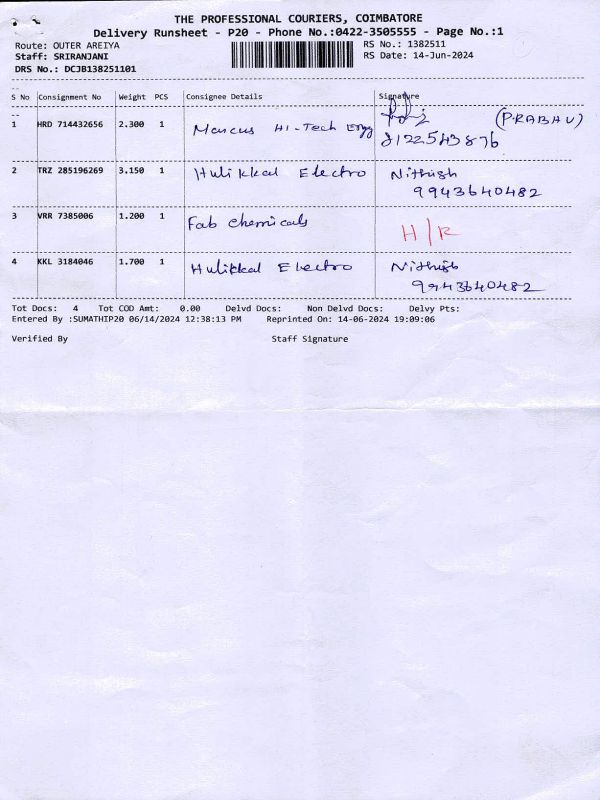 THE PROFESSIONAL COURIERS, COIMBATORE
Delivery Runsheet - P20 - Phone No.:0422-3505555 - Page No.:1
Route: OUTER AREIYA RS No.: 1382511
Staff: SRIRANJANI RS Date: 14-Jun-2024
DRS No.: DCJB138251101
S No Consignment No Weight PCS Consignee Details Signature
1 HRD 714432656 2.300 1 Marcus Hi-Tech Engg (PRABHU)
8122543876
2 TRZ 285196269 3.150 1 Hulikkal Electro Nithish
9943640482
3 VRR 7385006 1.200 1 Fab chemicals H/R
4 KKL 3184046 1.700 1 Hulikkal Electro Nithish
9943640482
Tot Docs: 4 Tot COD Amt: 0.00 Delvd Docs: Non Delvd Docs: Delvy Pts:
Entered By :SUMATHIP20 06/14/2024 12:38:13 PM Reprinted On: 14-06-2024 19:09:06
Verified By Staff Signature